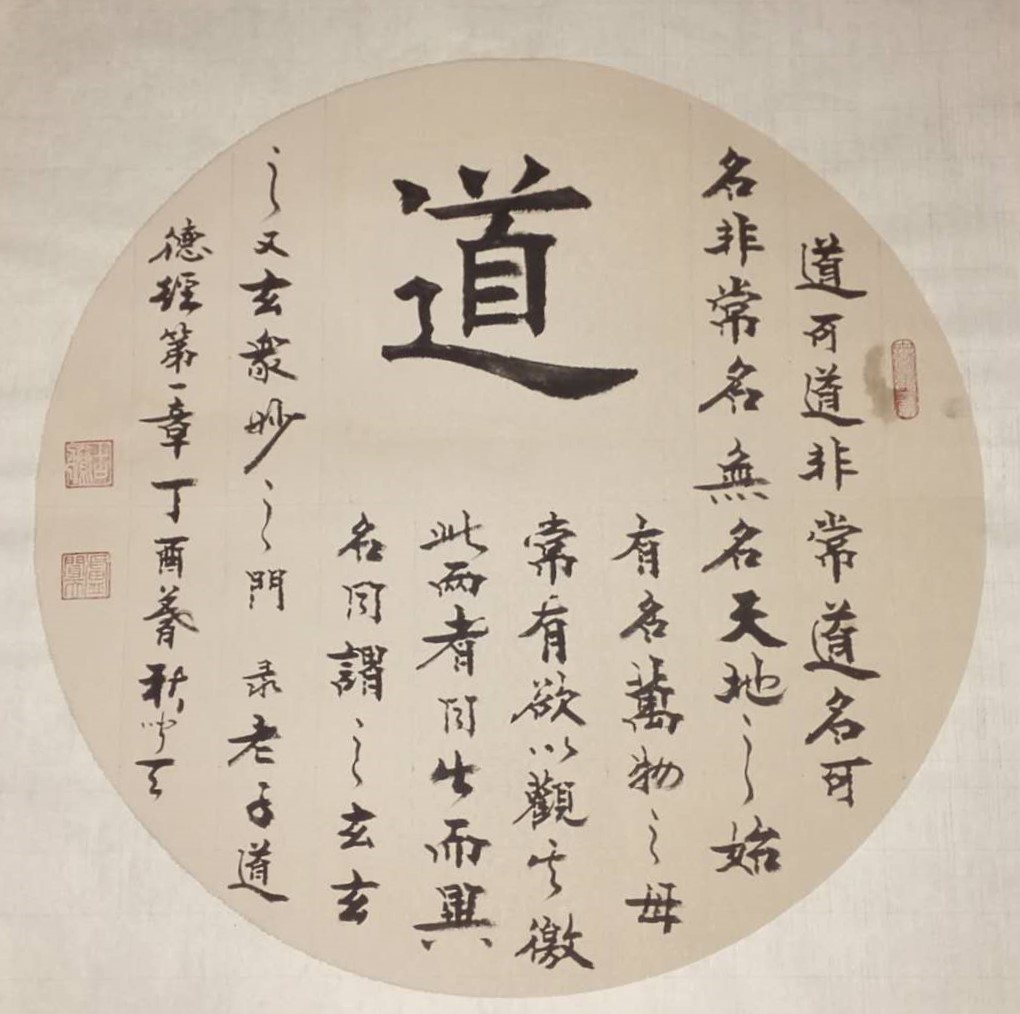 道
道可道非常道名可
名非常名無名天地之始
有名萬物之母
常有欲以觀其徼
此兩者同出而異
名同謂之玄玄
之又玄衆妙之門 录老子道
德經第一章丁酉暮秋